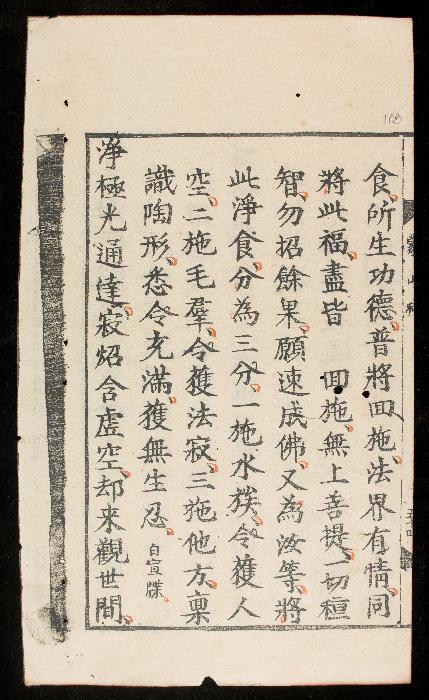 食、所生功德、普將回施、法界有情、同
將此福、盡皆回施、無上菩提、一切種
智、勿招餘果、願速成佛、又為汝等、將
此淨食、分為三分、一施水族、令獲人
空、二施毛羣、令獲法寂、三施他方、稟
識陶形、悉令充滿、獲無生忍、白宣牒
淨極光通達、寂炤含虛空、却来觀世間、
108